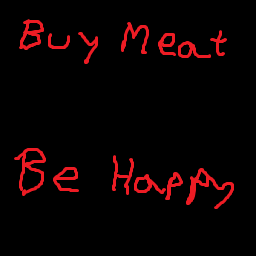 Buy Meat
Be Happy